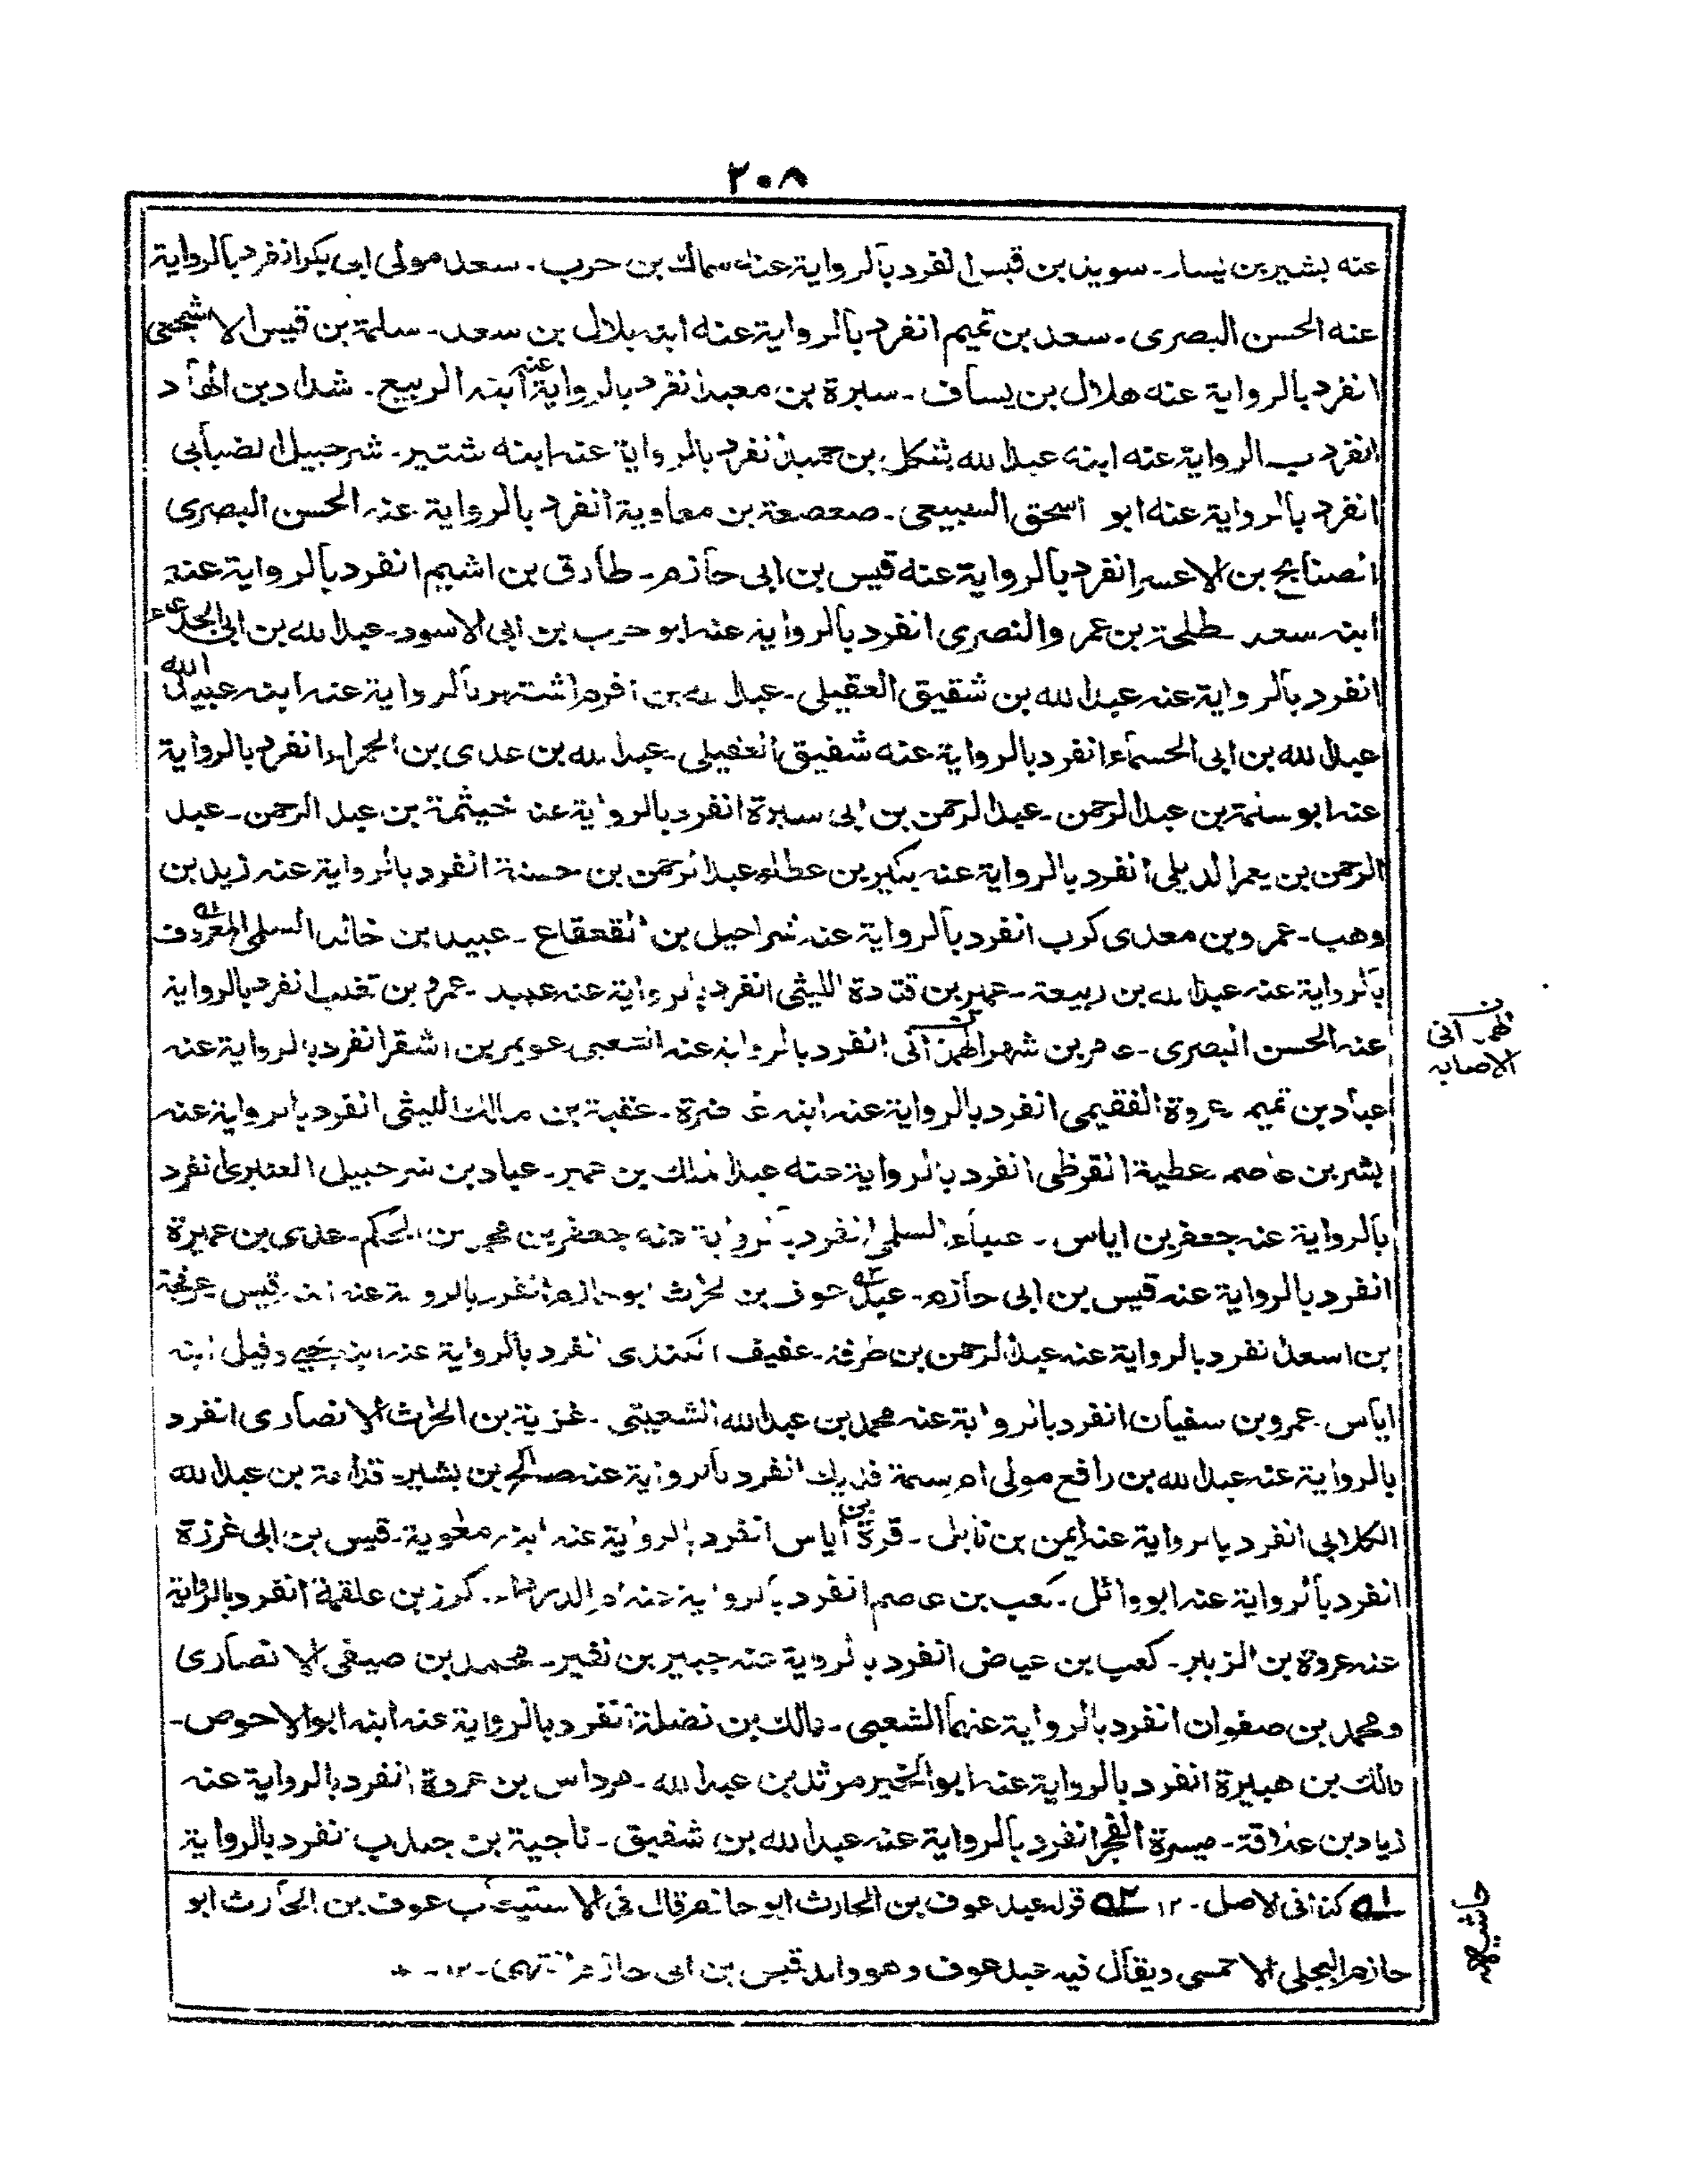 ٢٠٨
عنه بشير بن يسار۔ سويد بن قيس انفرد بالرواية عنه سماك بن حرب۔ سعد مولى ابى بكر انفرد بالرواية
عنه الحسن البصرى۔ سعد بن تميم انفرد بالرواية عنه ابنه بلال بن سعد۔ سلمة بن قيس الاشجعى
انفرد بالرواية عنه هلال بن يساف۔ سبرة بن معبد انفرد بالرواية عنه ابنه الربيع۔ شداد بن الهاد
انفرد بالرواية عنه ابنه عبد الله شكل بن حميد انفرد بالرواية عنه ابنه شتير۔ شرحبيل الضبابى
انفرد بالرواية عنه ابو اسحق السبيعى۔ صعصعة بن معاوية انفرد بالرواية عنه الحسن البصرى
الصنابح بن الاعسر انفرد بالرواية عنه قيس بن ابى حازم۔ طارق بن اشيم انفرد بالرواية عنه
ابنه سعد طلحة بن عمرو النصرى انفرد بالرواية عنه ابو حرب بن ابى الاسود۔ عبد الله بن ابى الجدعاء
انفرد بالرواية عنه عبد الله بن شقيق العقيلى۔ عبد الله بن اقرم اشتهر بالرواية عنه ابنه عبيد الله
عبد الله بن ابى الحسماء انفرد بالرواية عنه شقيق العقيلى۔ عبد الله بن عدى بن الحمراء انفرد بالرواية
عنه ابو سلمة بن عبد الرحمن۔ عبد الرحمن بن ابى سبرة انفرد بالرواية عنه خيثمة بن عبد الرحمن۔ عبد
الرحمن بن يعمر الديلى انفرد بالرواية عنه بكير بن عطاء عبد الرحمن بن حسنة انفرد بالرواية عنه زيد بن
وهب۔ عمرو بن معدى كرب انفرد بالرواية عنه شراحيل بن القعقاع۔ عبيد بن خالد السلمى المعروف
بالرواية عنه عبد الله بن ربيعة۔ عمير بن قتادة الليثى انفرد بالرواية عنه عبيد۔ عمرو بن تغلب انفرد بالرواية
عنه الحسن البصرى۔ عامر بن شهر الهمدانى انفرد بالرواية عنه الشعبى عويمر بن اشقر انفرد بالرواية عنه
عباد بن تميم عروة الفقيمى انفرد بالرواية عنه ابنه غاضرة۔ عقبة بن مالك الليثى انفرد بالرواية عنه
بشر بن عاصم عطية القرظى انفرد بالرواية عنه عبد الملك بن عمير۔ عباد بن شرحبيل العنبرى انفرد
بالرواية عنه جعفر بن اياس۔ السلمى انفرد بالرواية عنه جعفر بن الحكم۔ عدى بن عميرة
انفرد بالرواية عنه قيس بن ابى حازم۔ عبد عوف بن الحارث ابو حازم انفرد بالرواية عنه ابنه قيس عرفجة
بن اسعد انفرد بالرواية عنه عبد الرحمن بن طرفة۔ عفيف الكندى انفرد بالرواية عنه ابنه يحيى وقيل ابنه
اياس۔ عمرو بن سفيان انفرد بالرواية عنه محمد بن عبد الله الشعيثى۔ غزية بن الحارث الانصارى انفرد
بالرواية عنه عبد الله بن رافع مولى ام سلمة فديك انفرد بالرواية عنه صالح بن بشير۔ قدامة بن عبد الله
الكلابى انفرد بالرواية عنه ايمن بن نابل۔ قرة بن اياس انفرد بالرواية عنه ابنه معوية۔ قيس بن ابى غرزة
انفرد بالرواية عنه ابو وائل۔ كعب بن عاصم انفرد بالرواية عنه ام الدرداء۔ كرز بن علقمة انفرد بالرواية
عنه عروة بن الزبير۔ كعب بن عياض انفرد بالرواية عنه جبير بن نفير۔ محمد بن صيفى الانصارى
ومحمد بن صفوان انفرد بالرواية عنهما الشعبى۔ مالك بن نضلة انفرد بالرواية عنه ابنه ابو الاحوص۔
مالك بن هبيرة انفرد بالرواية عنه ابو الخير مرثد بن عبد الله۔ مرداس بن عروة انفرد بالرواية عنه
زياد بن علاقة۔ ميسرة الفجر انفرد بالرواية عنه عبد الله بن شقيق۔ ناجية بن جندب انفرد بالرواية
الاصابه
حاشيه
١ه كذا فى الاصل۔ ١٢ ٢ه قوله عبد عوف بن الحارث ابو حازم قال فى الاستيعاب عوف بن الحارث ابو
حازم البجلى الاحمسى ويقال فيه عبد عوف وهو والد قيس بن ابى حازم انتهى۔ ١٢۔